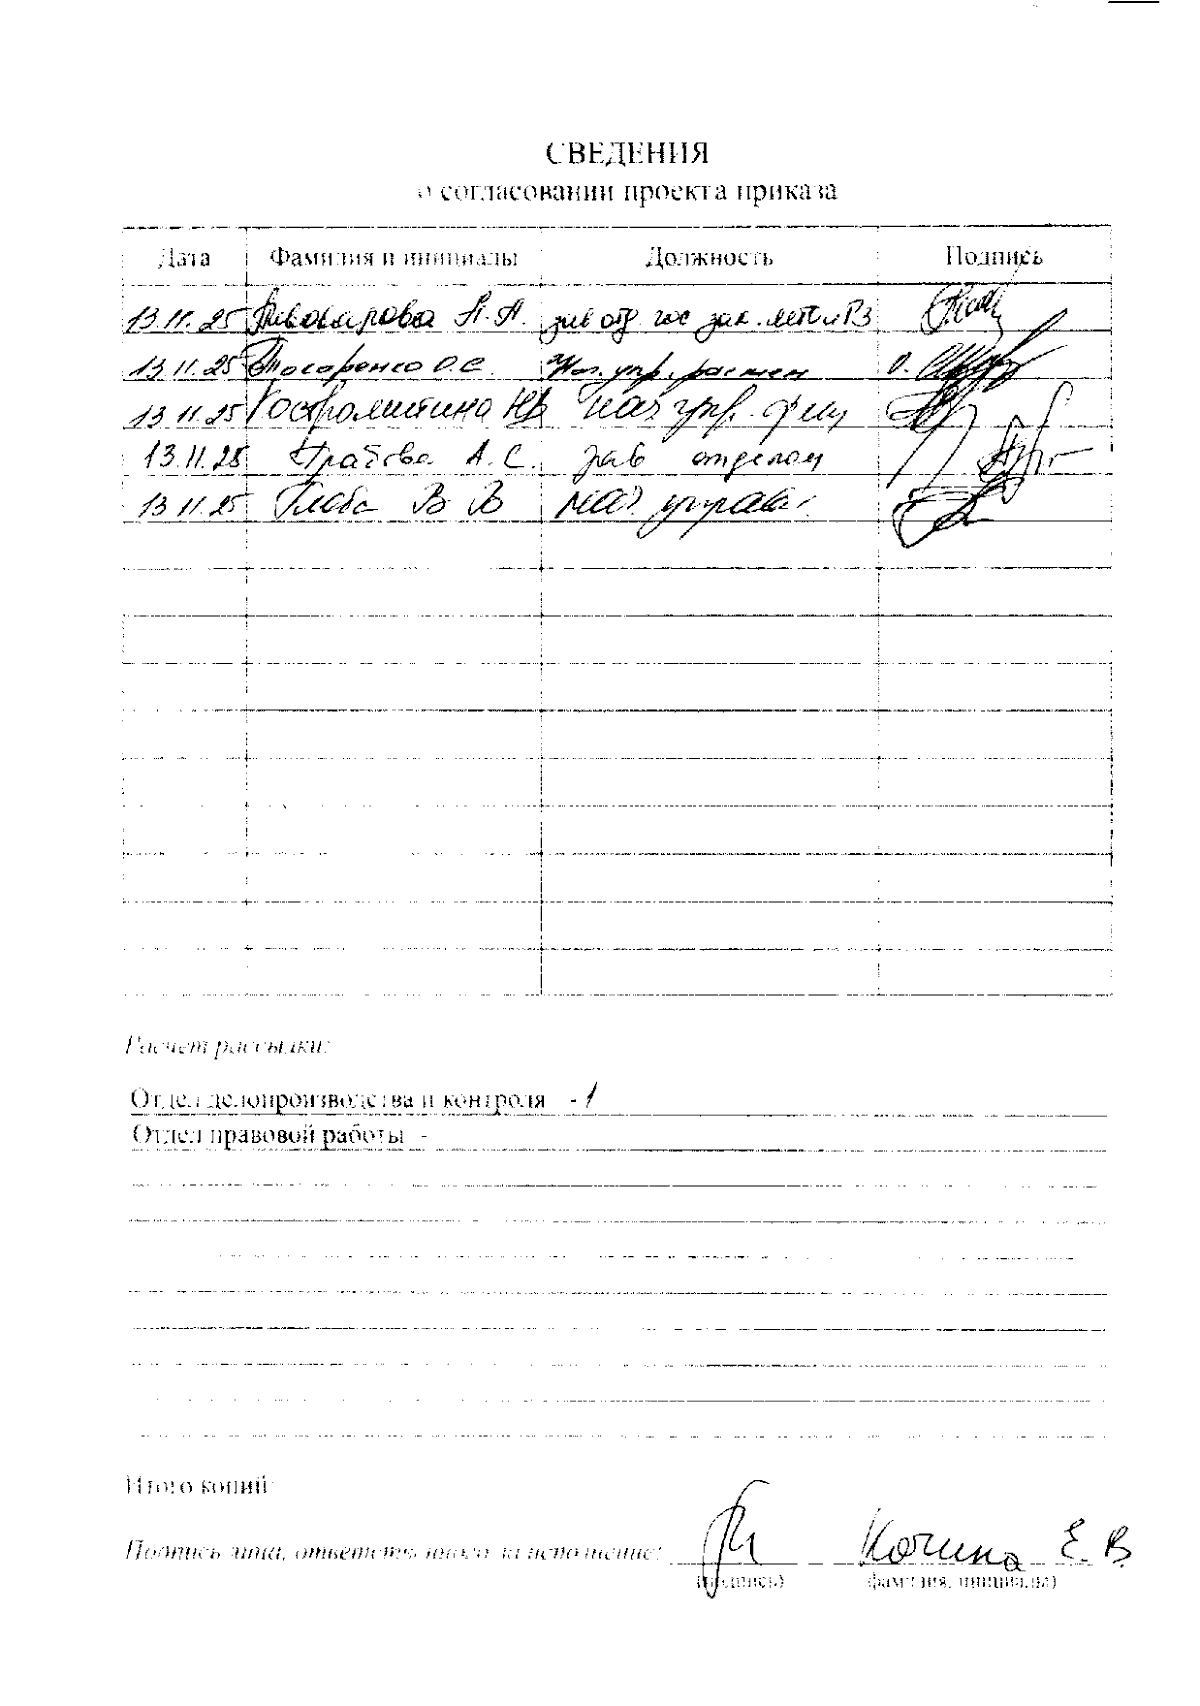 СВЕДЕНИЯ
о согласовании проекта приказа
Дата Фамилия и инициалы Должность Подпись
13.11.25 Пивоварова А.А. зав отд гос зак. леса и ВЗ
13.11.25 О.С.
13.11.25 нач упр. фин
13.11.25 А.С. зав отделом
13.11.25 Глоба В В нач. управл.
Расчет рассылки:
Отдел делопроизводства и контроля - 1
Отдел правовой работы -
Итого копий
Подпись лица, ответственного за исполнение: Кочина Е.В.
(подпись) фамилия, инициалы)